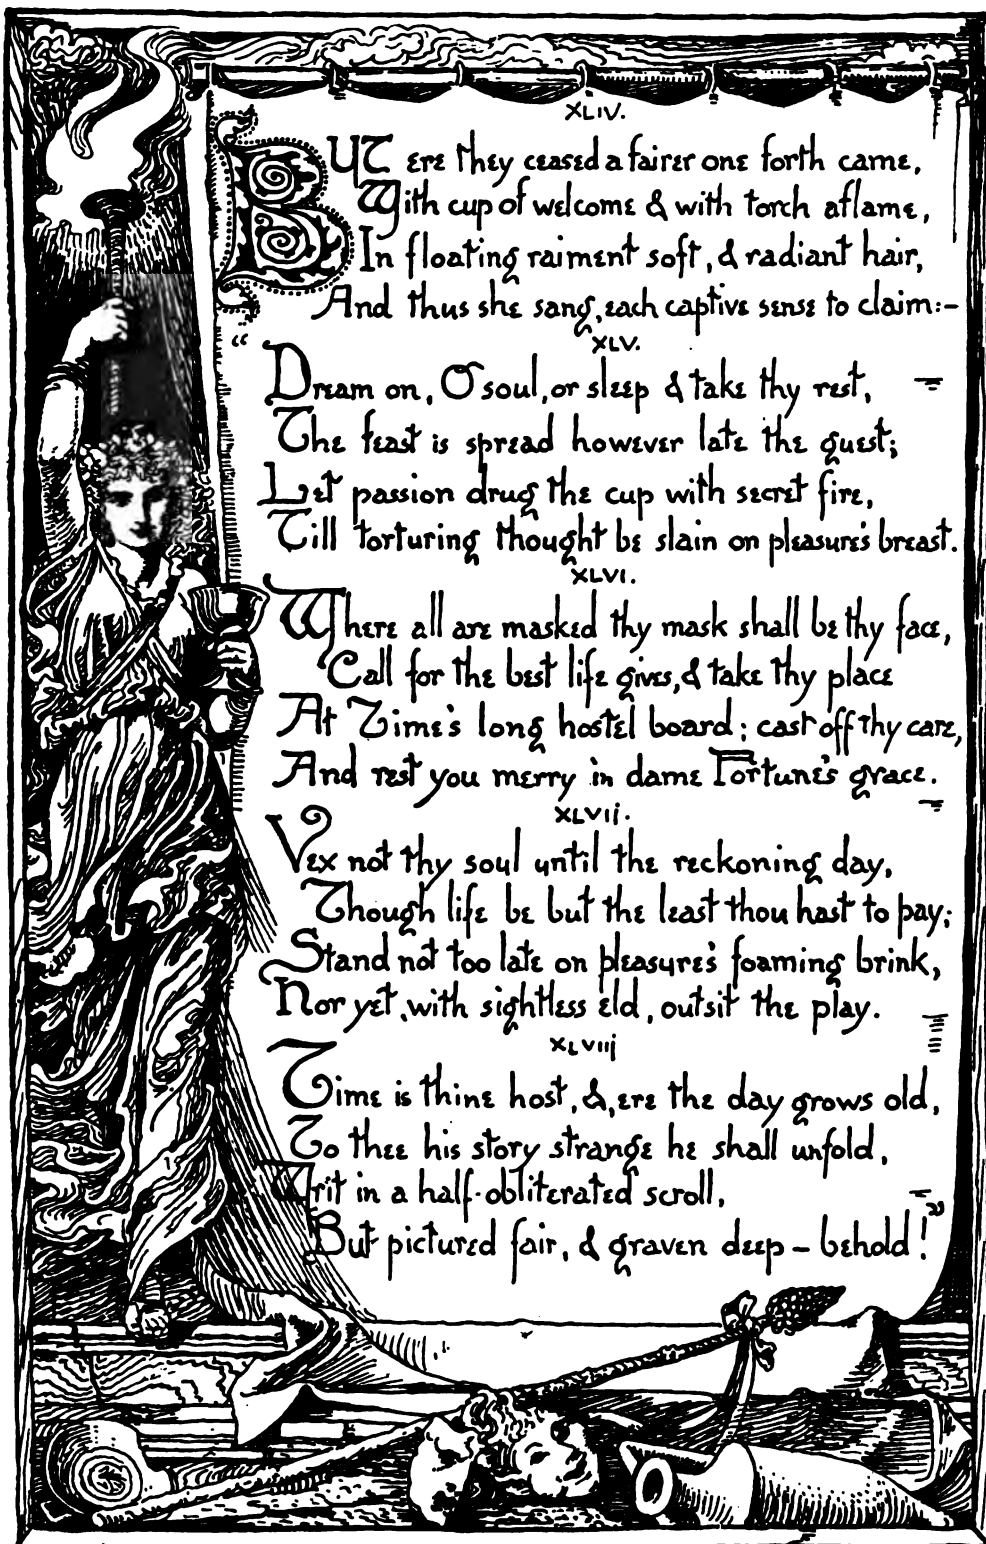 XLIV.
BUT ere they ceased a fairer one forth came,
With cup of welcome & with torch aflame,
In floating raiment soft, & radiant hair,
And thus she sang, each captive sense to claim:-
XLV.
"Dream on, O soul, or sleep & take thy rest,
The feast is spread however late the guest;
Let passion drug the cup with secret fire,
Till torturing thought be slain on pleasure's breast.
XLVI.
Where all are masked thy mask shall be thy face,
Call for the best life gives, & take thy place
At Time's long hostel board; cast off thy care,
And rest you merry in dame Fortune's grace.
XLVIJ.
Vex not thy soul until the reckoning day,
Though life be but the least thou hast to pay;
Stand not too late on pleasure's foaming brink,
Nor yet, with sightless eld, outsit the play.
XLVIIJ
Time is thine host, &, ere the day grows old,
To thee his story strange he shall unfold,
Writ in a half-obliterated scroll,
But pictured fair, & graven deep – behold!"